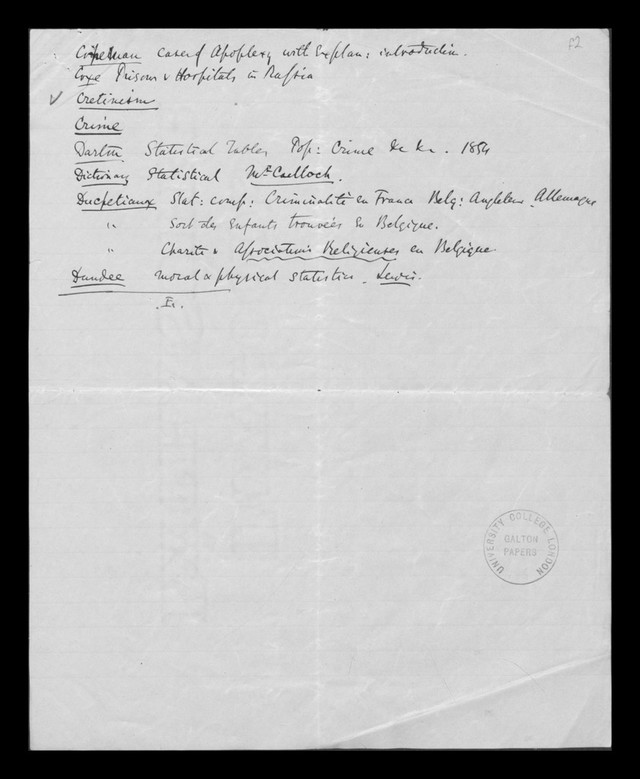 f2
Copeman cases of Apoplexy with Explan: introduction.
Coxe Prisons & Hospitals in Russia
✓ Cretinism
Crime
Darton Statistical Tables Pop: Crime &c &c. 1854
Dictionary Statistical McCulloch.
Ducpetiaux Stat: comp: Criminalité en France Belg: Angleterre Allemagne
" Sort des Enfants trouvées en Belgique.
" Charité & Associations Religieuses en Belgique.
Dundee moral & physical statistics. Lewis.
UNIVERSITY COLLEGE LONDON
GALTON
PAPERS